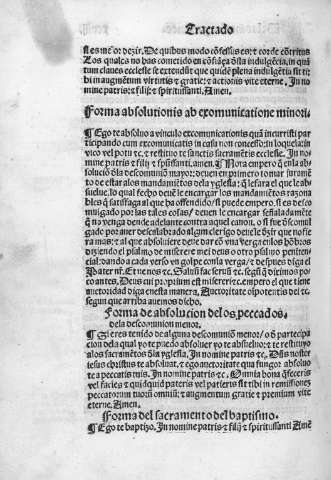 Tractado
st es me or dezir. De quibus modo cõfessus es: et corde cõtritus
Tos qual ca no bas cometido en cõfiãça õsta indulgẽcia, in quã
tum claues ecclesie se extendũt que quidẽ plena indulgẽtiẽ sit ti:
bi in augmẽtum virtutis et gratie: et actionis vite eterne. In no
mine patris: et filij: et spiritussancti. Amen.
Forma absolutionis ab excomunicatione minori.
¶ Ego te absoluo a vinculo excomunicationis quã incurristi par
ticipando cum excomunicatis in casu non concesso: in loquela: in
vico vel potu et c. et restituo te sanctis sacramẽtis ecclesie. In no
mine patris et filij et spũssancti. amen. ¶ Nota empero q̃ en la ab
solució õla descomuniõ mayor: deuen en primero tomar juramẽ
to de estar alos mandamiẽtos dela yglesia: q̃ le sara el que le ab
suelue. lo qual fecho deue le encargar los mandamiẽtos razona
bles q̃ satisfaga al que ha offendido/ si puede empero. si es desco
mulgado por tales cosas/ deuen le encargar señaladamẽte
q̃ no venga dende adelante contra el canon. o si fue õscomul
gado por auer descalabrado algun clerigo deue le dezir que no fie
ra mas: et al que absoluiere deue dar cõ vna verga en los hõbros
diziendo el psalmo, de miserere mei deus o otro psalmo peniten
cial, dando a cada verso vn golpe con la verga/ et despues diga el
Pater nr̃. Et ne nos et c. Saluũ fac seruũ et c. segũ q̃ diximos po
co antes. Deus cui proprium est misereri et c. empero el que tiene
auctoridad diga en esta manera. Auctoritate oĩpotentis dei et c.
segun que arriba auemos dicho.
Forma de absolucion delos peccados.
dela descomunion menor.
¶ Si eres tenido de alguna descomuniõ menor/ o õ participa
cion dela qual yo te puedo absoluer yo te absueluo: et te restituyo
alos sacramẽtos õla yglesia. In nomine patris et c. Dñs noster
iesus christus te absoluat, et ego auctoritate qua fungor absoluo
te a peccatis tuis. In nomine patris et c. Omnia bona q̃ feceris
vel facies et quidquid pateris vel patieris sit tibi in remissionez
peccatorum tuorũ omniũ: et augmentum gratie et premium vite
eterne. Amen.
Forma del sacramento del baptismo.
¶ Ego te baptizo. In nomine patris et filij et spiritussancti Amẽ